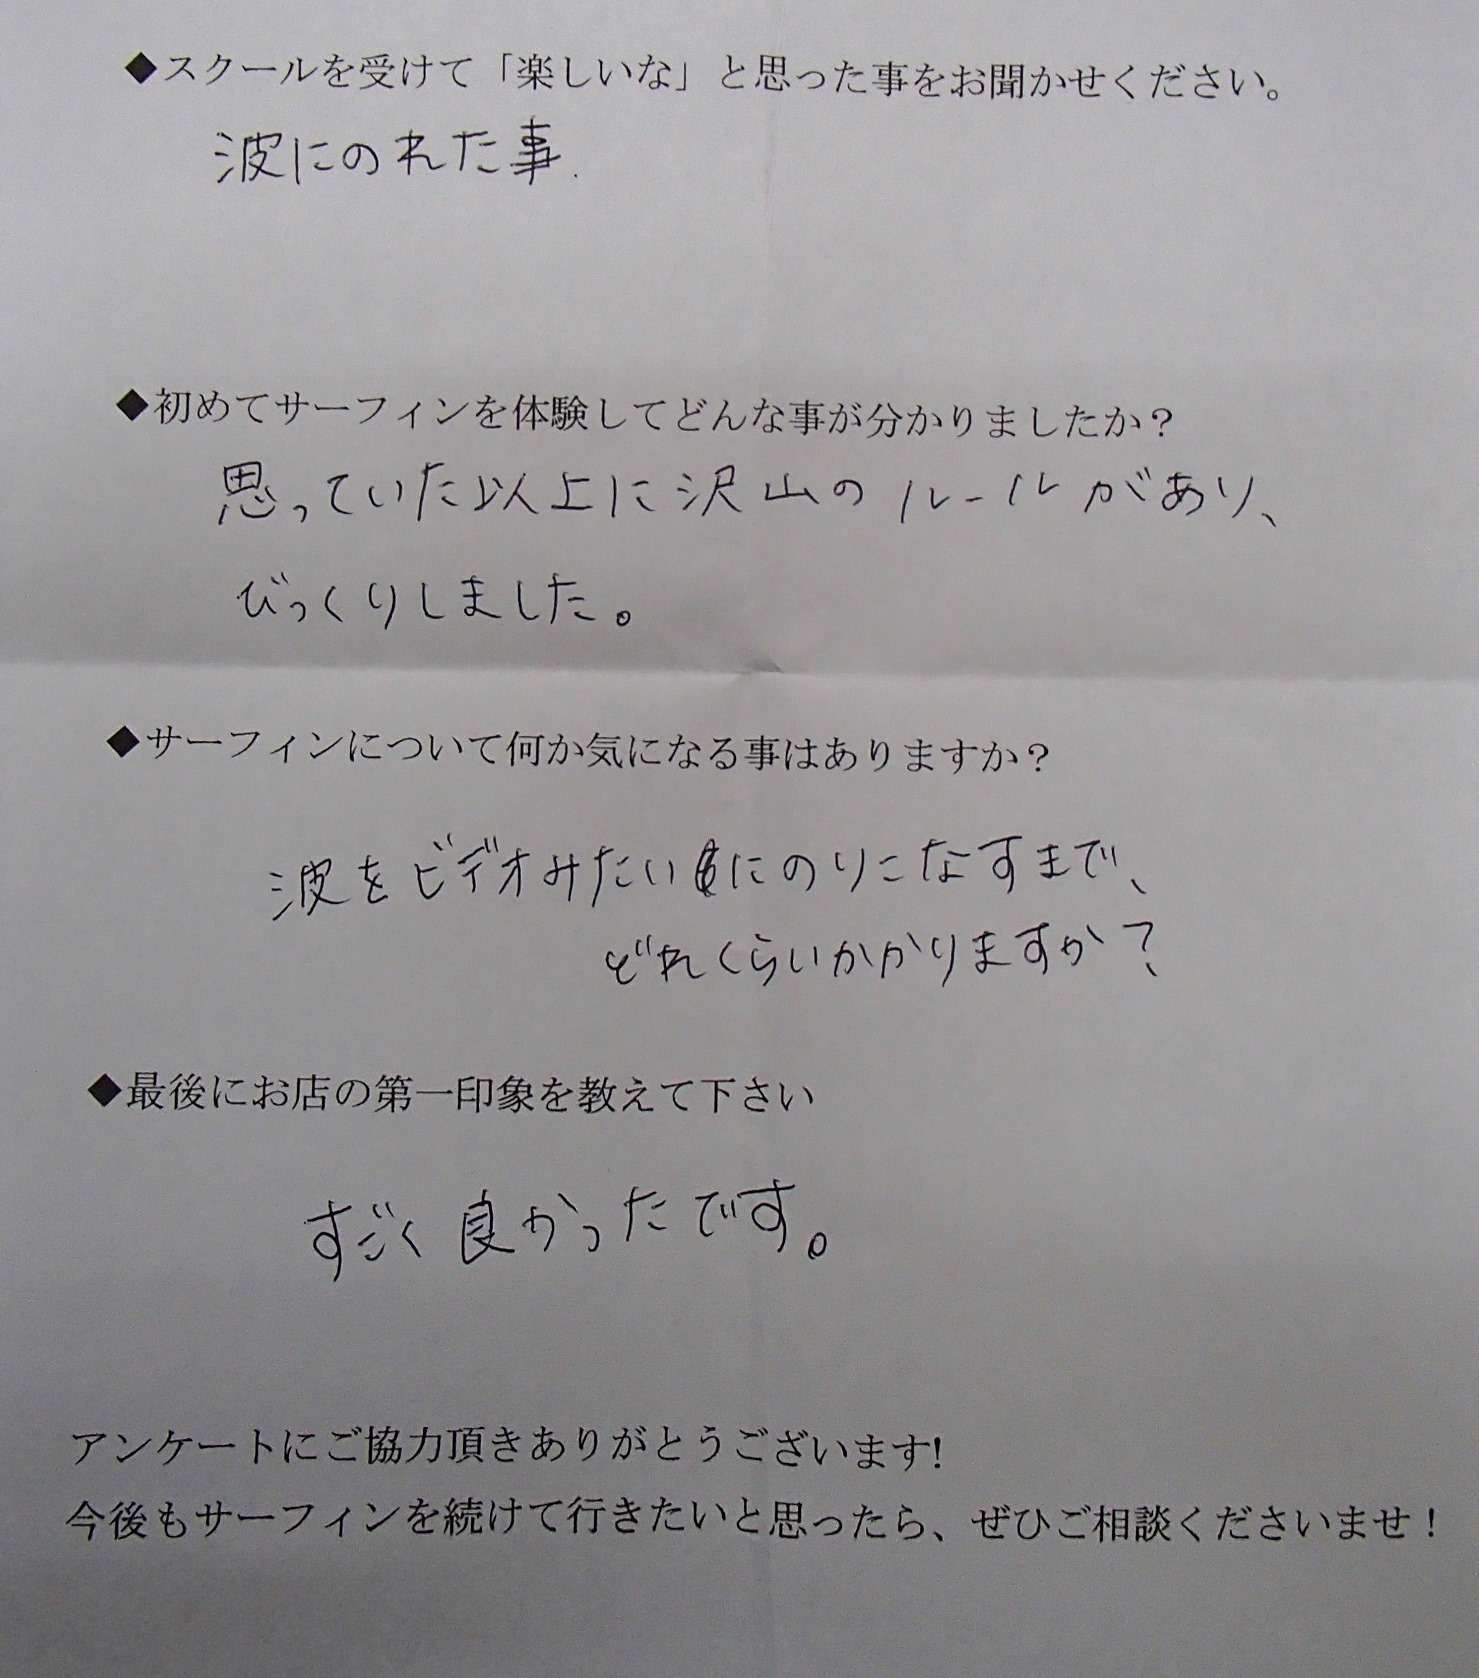 ◆スクールを受けて「楽しいな」と思った事をお聞かせください。
波にのれた事.
◆初めてサーフィンを体験してどんな事が分かりましたか?
思っていた以上に沢山のルールがあり、
びっくりしました。
◆サーフィンについて何か気になる事はありますか?
波をビデオみたいにのりこなすまで、
どれくらいかかりますか?
◆最後にお店の第一印象を教えて下さい
すごく良かったです。
アンケートにご協力頂きありがとうございます!
今後もサーフィンを続けて行きたいと思ったら、ぜひご相談くださいませ!